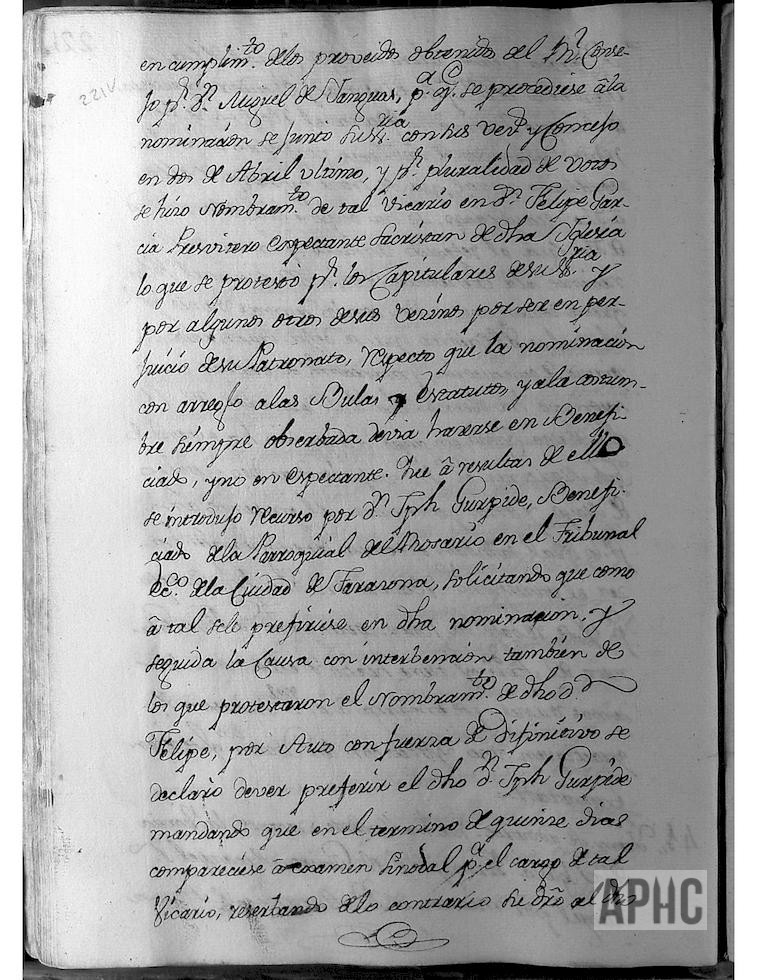 221v
en cumplim.to delos proveidos obtenidos del Rl. Conse-
jo pr. Dn. Miguel de Yanguas, pa. q.e se procediese â la
nominacion se junto su Sria. con sus vec.s y Concejo
en dos de Abril ultimo, y pr. pluralidad de votos
se hizo Nombram.to de tal Vicario en Dn. Felipe Gar-
cia Presvitero expectante Sacristan de dha Iglesia
lo que se protestó pr. los Capitulares desu Sria y
por algunos otros desus vezinos por ser en per-
juicio desu Patronato, respecto que la nominacion
con arreglo alas Bulas y estatutos, y ala costum-
bre siempre observada devia hazerse en Benefi-
ciado, y no en espectante. Que â resultas de ello
se introdujo recurso por Dn. Jph Gurpide, Benefi-
ciado dela Parroquial del Rosario en el Tribunal
Ecco. dela Ciudad de Tarazona, solicitando que como
â tal sele prefiriese en dha nominacion, y
seguida la Causa con interbencion tambien de
los que protestaron el Nombram.to de dho Dn
Felipe, por Auto con fuerza de Difinitivo se
declaró dever preferir el dho Dn. Jph Gurpide
mandando que en el termino de quinze dias
compareciese â examen Sinodal pa. el cargo de tal
Vicario, reserbando delo contrario su dro al dho
APHC